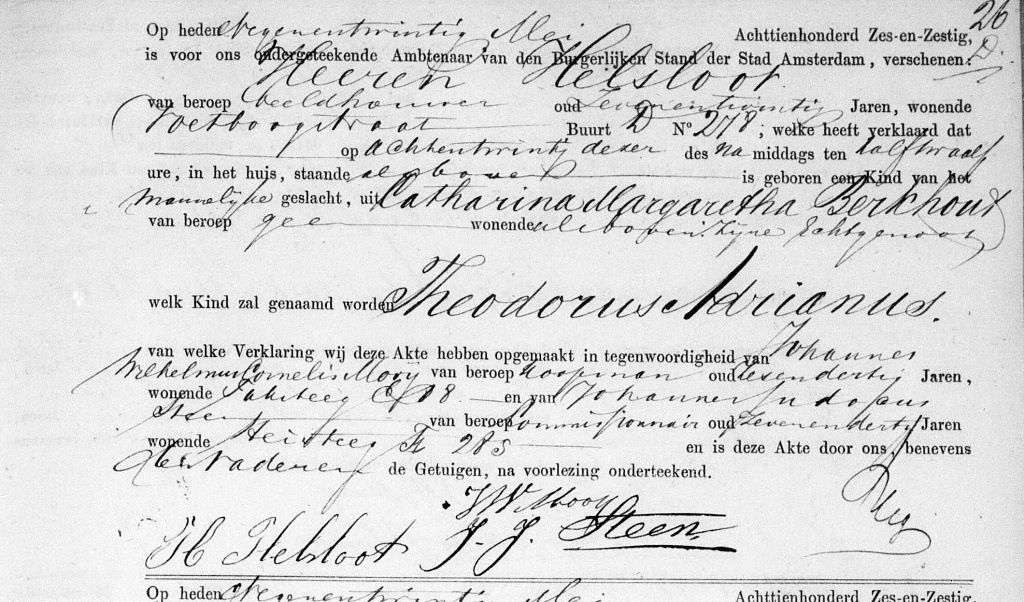 26
D.
Op heden Negenentwintig Mei Achttienhonderd Zes-en-Zestig,
is voor ons ondergeteekende Ambtenaar van den Burgerlijken Stand der Stad Amsterdam, verschenen:
Heeren Helsloot
van beroep beeldhouwer oud Zevenentwintig Jaren, wonende
Voetboogstraat Buurt D No 278; welke heeft verklaard dat
op achtentwintig dezer des na middags ten half twaalf
ure, in het huis, staande als boven is geboren een Kind van het
Mannelijke geslacht, uit Catharina Margaretha Berkhout
van beroep geen wonende als boven. Zijne Echtgenoot
welk Kind zal genaamd worden Theodorus Adrianus.
van welke Verklaring wij deze Akte hebben opgemaakt in tegenwoordigheid van Johannes
Wilhelmus Cornelis Mooij van beroep Koopman oud Zesendertig Jaren,
wonende en van Johannes Judocus
Steen van beroep Commissionnair oud Zevenendertig Jaren
wonende Heisteeg K 285 en is deze Akte door ons, benevens
den Vader en de Getuigen, na voorlezing onderteekend.
JWC Mooij
H Helsloot J. J. Steen
Op heden Negenentwintig Mei Achttienhonderd Zes-en-Zestig,